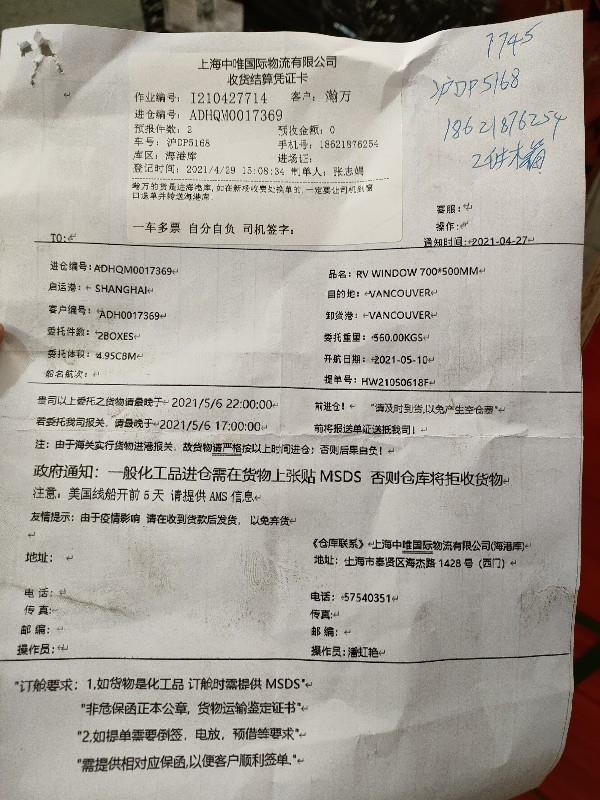 上海中唯国际物流有限公司
收货结算凭证卡
作业编号: I210427714 客户: 瀚万
进仓编号: ADHQM0017369
预报件数: 2 预收金额: 0
车号: 沪DP5168 手机号: 18621876254
库区: 海港库 进场证:
登记时间: 2021/4/29 15:08:34 制单人: 张志娟
瀚万的货是进海港库, 如在新经收费处换单的, 一定要让司机到窗
口退单并转送海港库.
一车多票 自分自负 司机签字:
7745
沪DP5168
18621876254
2件木箱
客服:
操作:
TO: 通知时间: 2021-04-27
进仓编号: ADHQM0017369 品名: RV WINDOW 700*500MM
启运港: SHANGHAI 目的地: VANCOUVER
客户编号: ADH0017369 卸货港: VANCOUVER
委托件数: 2BOXES 委托重量: 560.00KGS
委托体积: 4.95CBM 开航日期: 2021-05-10
船名航次: 提单号: HW21050618F
贵司以上委托之货物请最晚于 2021/5/6 22:00:00 前进仓! "请及时到货,以免产生空仓费"
若委托我司报关, 请最晚于 2021/5/6 17:00:00 前将报送单证送抵我司!
注: 由于海关实行货物进港报关, 故货物请严格按以上时间进仓; 否则后果自负!
政府通知: 一般化工品进仓需在货物上张贴 MSDS 否则仓库将拒收货物
注意: 美国线船开前 5 天 请提供 AMS 信息
友情提示: 由于疫情影响 请在收到货款后发货, 以免弃货
《仓库联系》上海中唯国际物流有限公司(海港库)
地址: 地址: 上海市奉贤区海杰路 1428 号 (西门)
电话: 电话: 57540351
传真: 传真:
邮编: 邮编:
操作员: 操作员: 潘虹艳
"订舱要求: 1,如货物是化工品 订舱时需提供 MSDS"
"非危保函正本公章, 货物运输鉴定证书"
"2,如提单需要倒签, 电放, 预借等要求"
"需提供相对应保函,以便客户顺利签单."